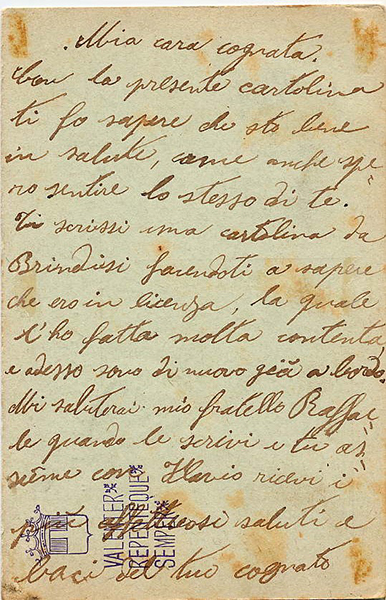 Mia cara cognata.
Con la presente cartolina
ti fo sapere che sto bene
in salute, come anche spe=
ro sentire lo stesso di te.
Ti scrissi una cartolina da
Brindisi facendoti a sapere
che ero in licenza, la quale
l'ho fatta molta contenta,
e adesso sono di nuovo già a bordo
Mi saluterai mio fratello Raffae
le quando le scrivi e tu as
sieme con Flavio ricevi i
più affettuosi saluti e
baci del tuo cognato
VALENTER
REPETISQUE
SEMPER